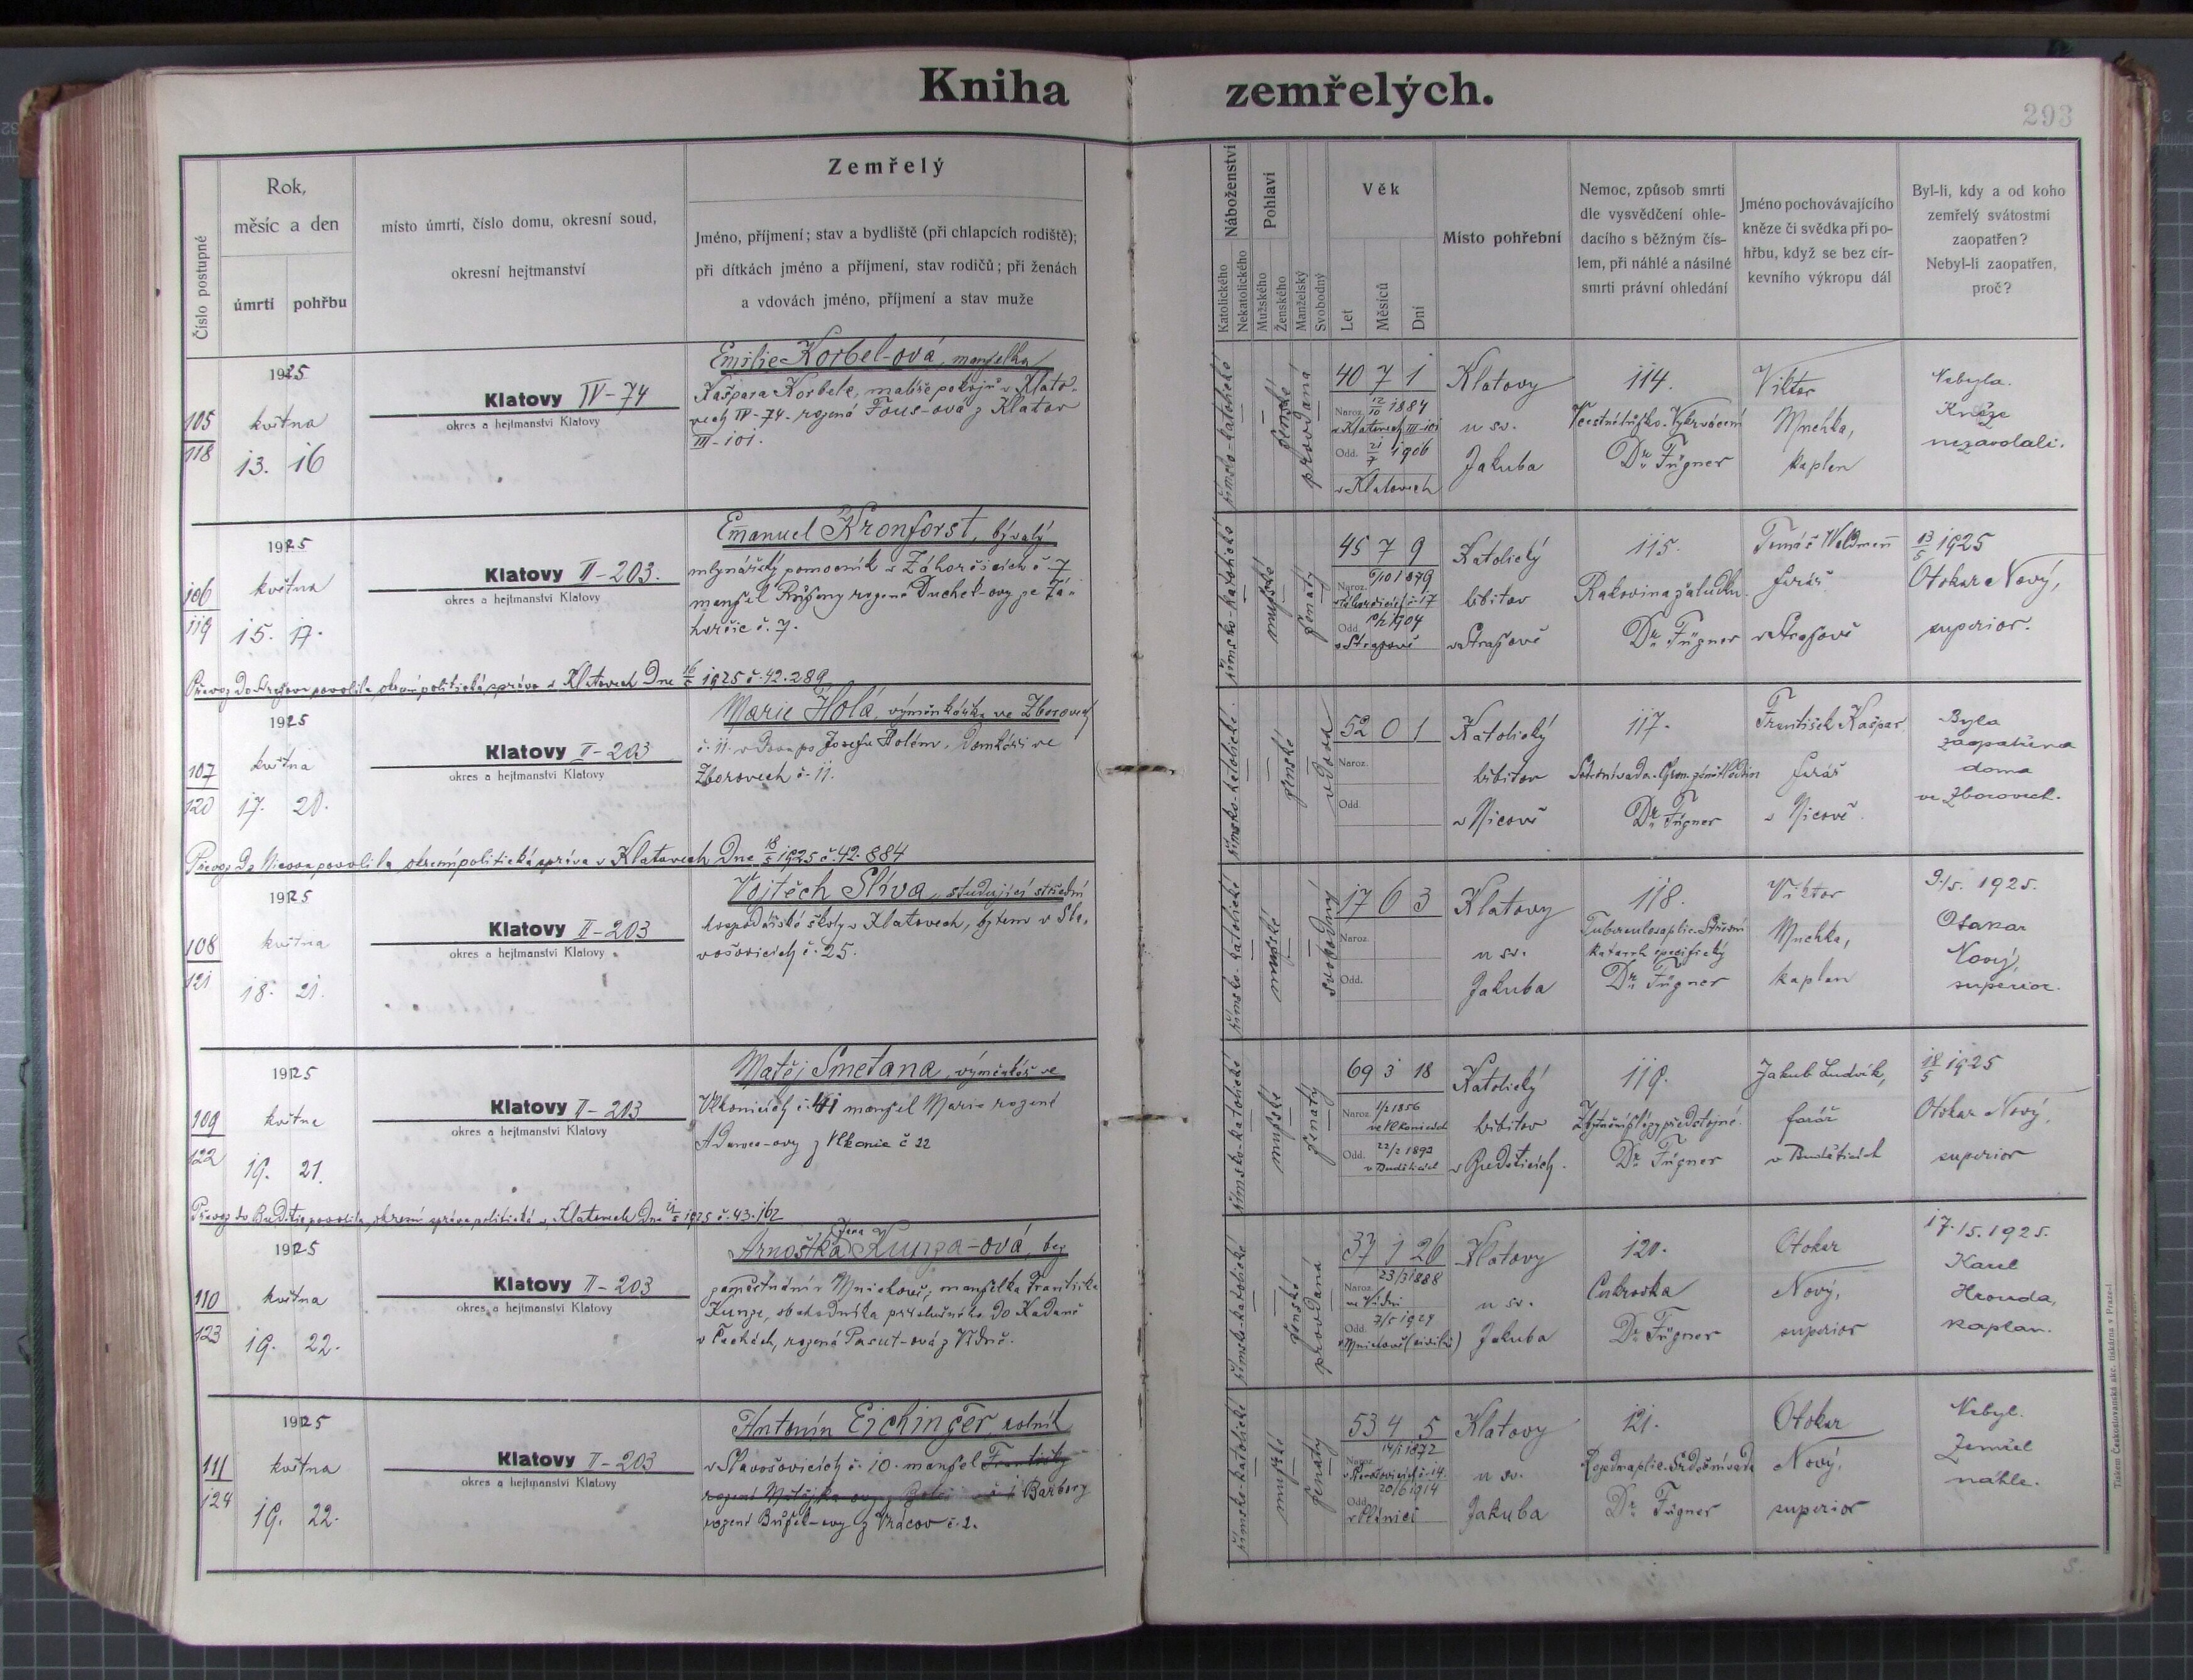 Kniha zemřelých.
293
Číslo postupné
Rok,
měsíc a den
úmrtí pohřbu
místo úmrtí, číslo domu, okresní soud,
okresní hejtmanství
Zemřelý
Jméno, příjmení; stav a bydliště (při chlapcích rodiště);
při dítkách jméno a příjmení, stav rodičů; při ženách
a vdovách jméno, příjmení a stav muže
Náboženství
Katolického
Nekatolického
Pohlaví
Mužského
Ženského
Manželský
Svobodný
Věk
Let
Měsíců
Dní
Místo pohřební
Nemoc, způsob smrti
dle vysvědčení ohle-
dacího s běžným čís-
lem, při náhlé a násilné
smrti právní ohledání
Jméno pochovávajícího
kněze či svědka při po-
hřbu, když se bez cír-
kevního výkropu dál
Byl-li, kdy a od koho
zemřelý svátostmi
zaopatřen?
Nebyl-li zaopatřen,
proč?
105
118
1925
května
13. 16
Klatovy IV-74
okres a hejtmanství Klatovy
Emilie Korbel-ová, manželka
Kašpara Korbele, malíře pokojů v Klato-
vech IV-74. rozená Fous-ová z Klatov
III-101.
římsko-katolické
ženské
provdaná
40 7 1
Naroz. 12/10 1884
v Klatovech III-101
Odd. 21/7 1906
v Klatovech
Klatovy
u sv.
Jakuba
114.
Dr. Fügner
Viktor
Muchka,
kaplan
Nebyla.
Kněze
nezavolali.
106
119
1925
května
15. 17.
Klatovy II-203.
okres a hejtmanství Klatovy
Emanuel Kronforst, bývalý
mlynářský pomocník v Záhorčicích č. 7
manžel Růženy rozené Duchek-ovy ze Zá-
horčic č. 7.
Převoz do Strašova povolila okresní politická správa v Klatovech dne 16/5 1925 č. 42.289
římsko-katolické
mužské
ženatý
45 7 9
Naroz. 6/10 1879
Odd. 1904
v Strašově
Katolický
hřbitov
ve Strašově
115.
Rakovina žaludku.
Dr. Fügner
Tomáš Waldmann
farář
ve Strašově
13/5 1925
Otokar Nový,
superior.
107
120
1925
května
17. 20.
Klatovy II-203
okres a hejtmanství Klatovy
Marie Holá, výměnkářka ve Zborovech
č. 11. vdova po Josefu Holém, domkáři ve
Zborovech č. 11.
Převoz do Nicova povolila okresní politická správa v Klatovech dne 18/5 1925 č. 42.884
římsko-katolické
ženské
vdova
52 0 1
Naroz.
Odd.
Katolický
hřbitov
v Nicově
117.
Dr. Fügner
František Kašpar
farář
v Nicově.
Byla
zaopatřena
doma
ve Zborovech.
108
121
1925
května
18. 21.
Klatovy II-203
okres a hejtmanství Klatovy
Vojtěch Slíva, studující střední
hospodářské školy v Klatovech, bytem v Sla-
vošovicích č. 25.
římsko-katolické
mužské
svobodný
17 6 3
Naroz.
Odd.
Klatovy
u sv.
Jakuba
118.
Tuberculosa plic. Střevní
katarrh specifický
Dr. Fügner
Viktor
Muchka,
kaplan
9./5. 1925.
Otakar
Nový,
superior.
109
122
1925
května
19. 21.
Klatovy II-203
okres a hejtmanství Klatovy
Matěj Smetana, výměnkář ve
Vlkonicích č. 41 manžel Marie rozené
Adamec-ovy z Vlkonic č 22
Převoz do Budětic povolila okresní správa politická v Klatovech dne 21/5 1925 č. 43.162
římsko-katolické
mužské
ženatý
69 3 18
Naroz. 1/2 1856
ve Vlkonicích
Odd. 22/2 1893
v Buděticích
Katolický
hřbitov
v Buděticích.
119.
Dr. Fügner
Jakub Ludvík,
farář
v Buděticích
18/5 1925
Otokar Nový,
superior
110
123
1925
května
19. 22.
Klatovy II-203
okres a hejtmanství Klatovy
Arnoštka Jana Kunza-ová, bez
zaměstnání v Mnichově, manželka Františka
Kunze, obchodníka příslušného do Kadaně
v Čechách, rozená Pascut-ová z Vídně.
římsko-katolické
ženské
provdaná
37 1 26
Naroz. 23/3 1888
ve Vídni
Odd. 3/5 1924
Mnichově (civilně)
Klatovy
u sv.
Jakuba
120.
Cukrovka
Dr. Fügner
Otokar
Nový,
superior
17./5. 1925.
Karel
Hrouda,
kaplan.
111
124
1925
května
19. 22.
Klatovy II-203
okres a hejtmanství Klatovy
Antonín Eichinger, rolník
v Slavošovicích č. 10. manžel Františky
rozené Barbory
rozené Bužek-ovy z Vrácov č. 2.
římsko-katolické
mužské
ženatý
53 4 5
Naroz. 14/1 1872
v Slavošovicích č. 14.
Odd. 20/6 1914
Klatovy
u sv.
Jakuba
121.
Rozedma plic. Srdeční vada
Dr. Fügner
Otokar
Nový,
superior
Nebyl.
Zemřel
náhle.
Tiskem Československá akc. tiskárna v Praze-I